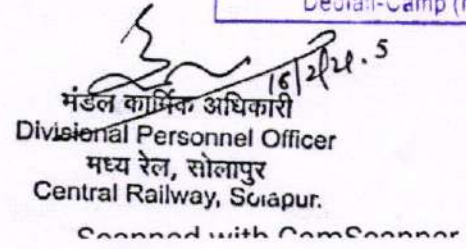 Deolali-Camp
मंडल कार्मिक अधिकारी
Divisional Personnel Officer
मध्य रेल, सोलापुर
Central Railway, Solapur.
Scanned with CamScanner